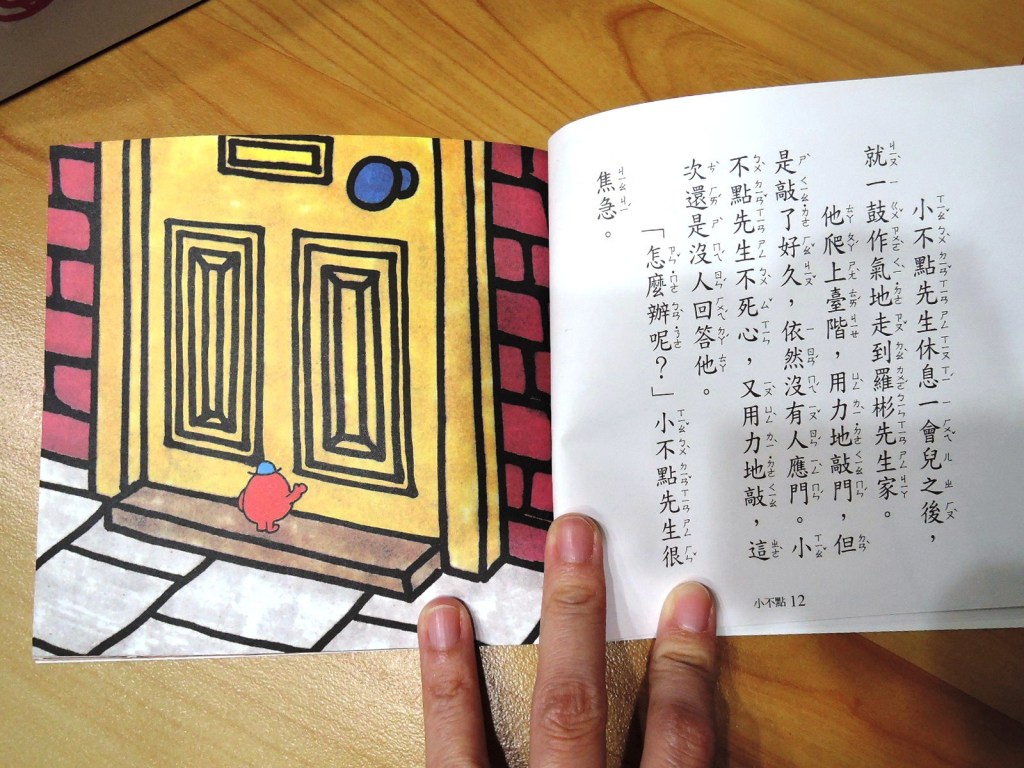 小不點先生休息一會兒之後，
就一鼓作氣地走到羅彬先生家。
他爬上臺階，用力地敲門，但
是敲了好久，依然沒有人應門。小
不點先生不死心，又用力地敲，這
次還是沒人回答他。
「怎麼辦呢？」小不點先生很
焦急。
小不點 12